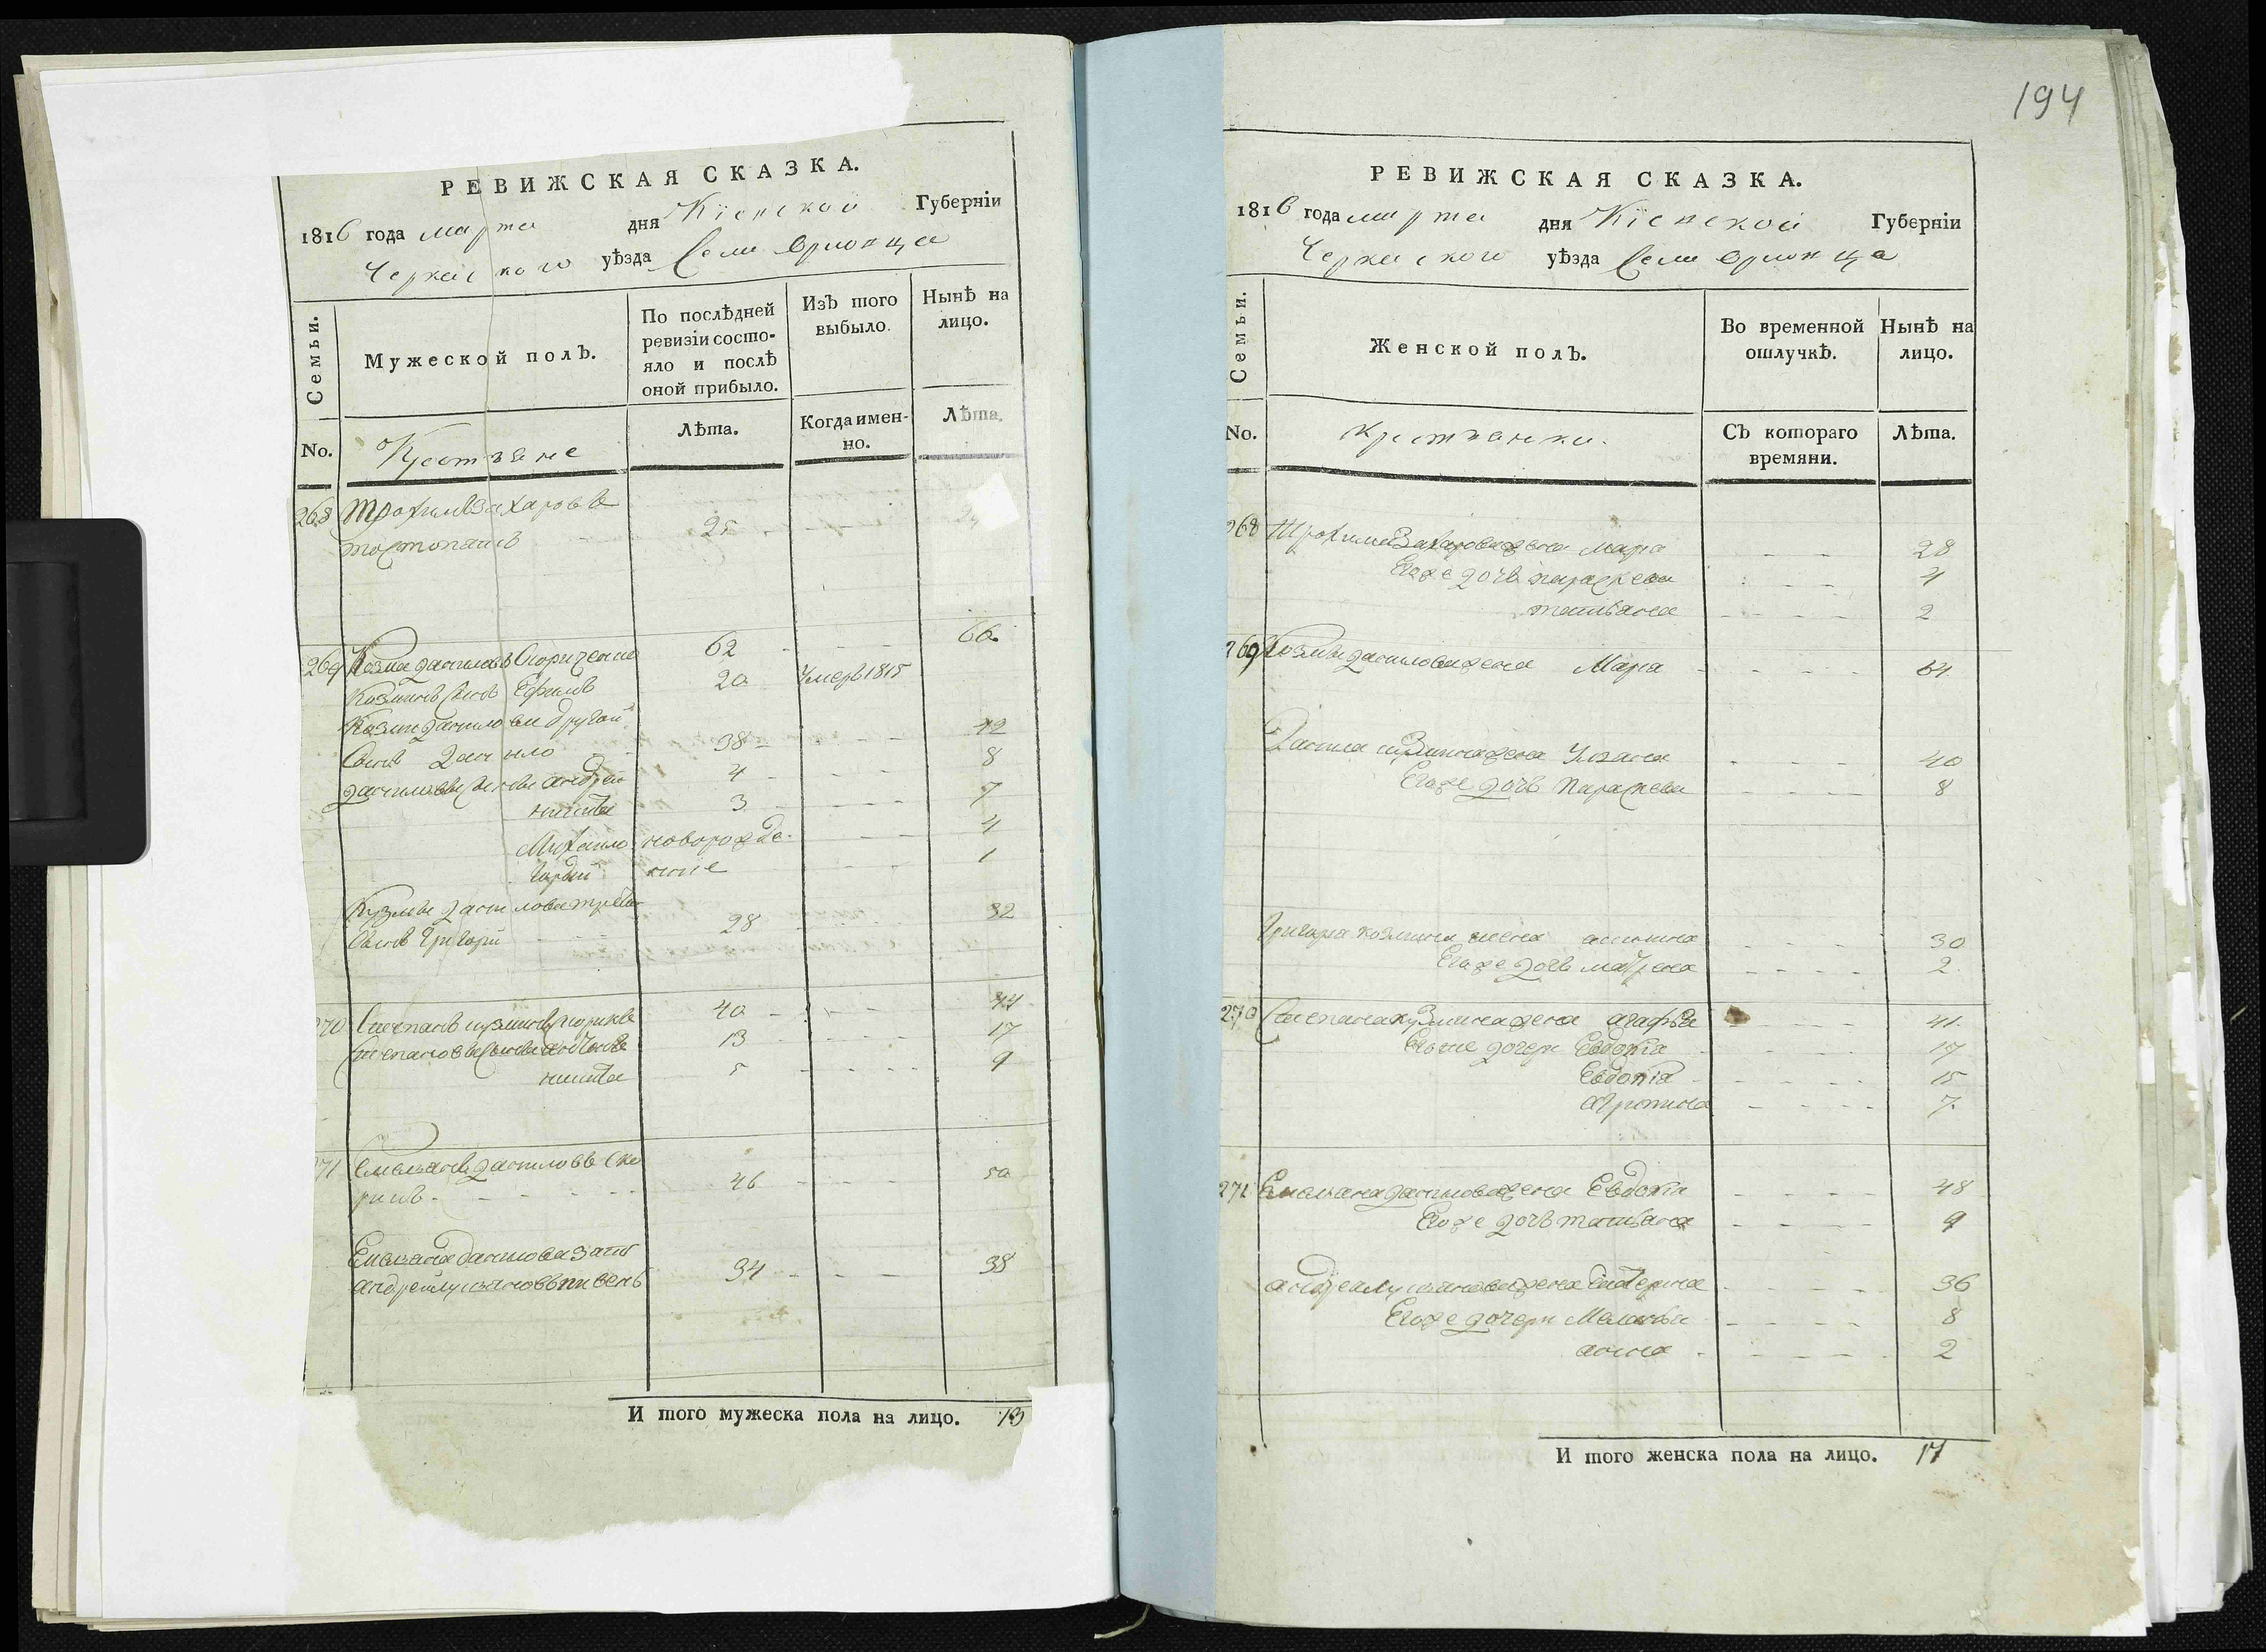 194
РЕВИЖСКАЯ СКАЗКА.
1816 года марта дня Кіевской Губерніи
Черкаского уѣзда Села Орловца
Семьи.
Мужеской полъ.
По послѣдней ревизіи состояло и послѣ оной прибыло.
Изъ того выбыло.
Нынѣ на лицо.
No.
Крестьяне
Лѣта.
Когда именно.
Лѣта.
268 Трохим Захаровъ
25
269 Козма Данилов 62 - - - 66
Козминъ Сынъ Ефимъ 20 Умеръ 1815
Козми Данилова другой
Сынъ Данило 38 - - - 42
Даниловы Сыновья Андрей 4 - - - 8
Никита 3 - - - 7
Михайло новорожде- - - 4
ные - - 1
Кузмы Данилова третий
Сынъ Григорий 28 32
270 Степанъ Кузминъ 40 - - - 44
Степановы Сыновья 13 - - - 17
Никита 5 - - - 9
271 Емельянъ Даниловъ Ско
рикъ - - - 46 - - - 50
Емельяна Данилова зять
Андрей Лукьяновъ Пивень 34 - - - 38
И того мужеска пола на лицо. 13
РЕВИЖСКАЯ СКАЗКА.
1816 года марта дня Кіевской Губерніи
Черкаского уѣзда Села Орловца
Семьи.
Женской полъ.
Во временной отлучкѣ.
Нынѣ на лицо.
No.
Крестьянки.
Съ котораго времяни.
Лѣта.
268 Трохима Захарова жена Марja - - - 28
Его же дочь Параскева - - - 4
Татьяна - - - 2
269 Козмы Данилова жена Мария - - - 64
Данила Кузмина жена Ульяна - - - 40
Его же дочь Параскева - - - 8
Григория Козмина жена - - - 30
Его же дочь Матрена - - - 2
270 Степана Кузмина жена Агафья - - - 41
Его же дочери Евдокія - - - 17
Евдокія - - - 15
- - - 7
271 Емельяна Данилова жена Евдокія - - - 48
Его же дочь Татьяна - - - 9
Андрея Лукьянова жена Катерина - - - 36
Его же дочери Маланья - - - 8
Анна - - - 2
И того женска пола на лицо. 17